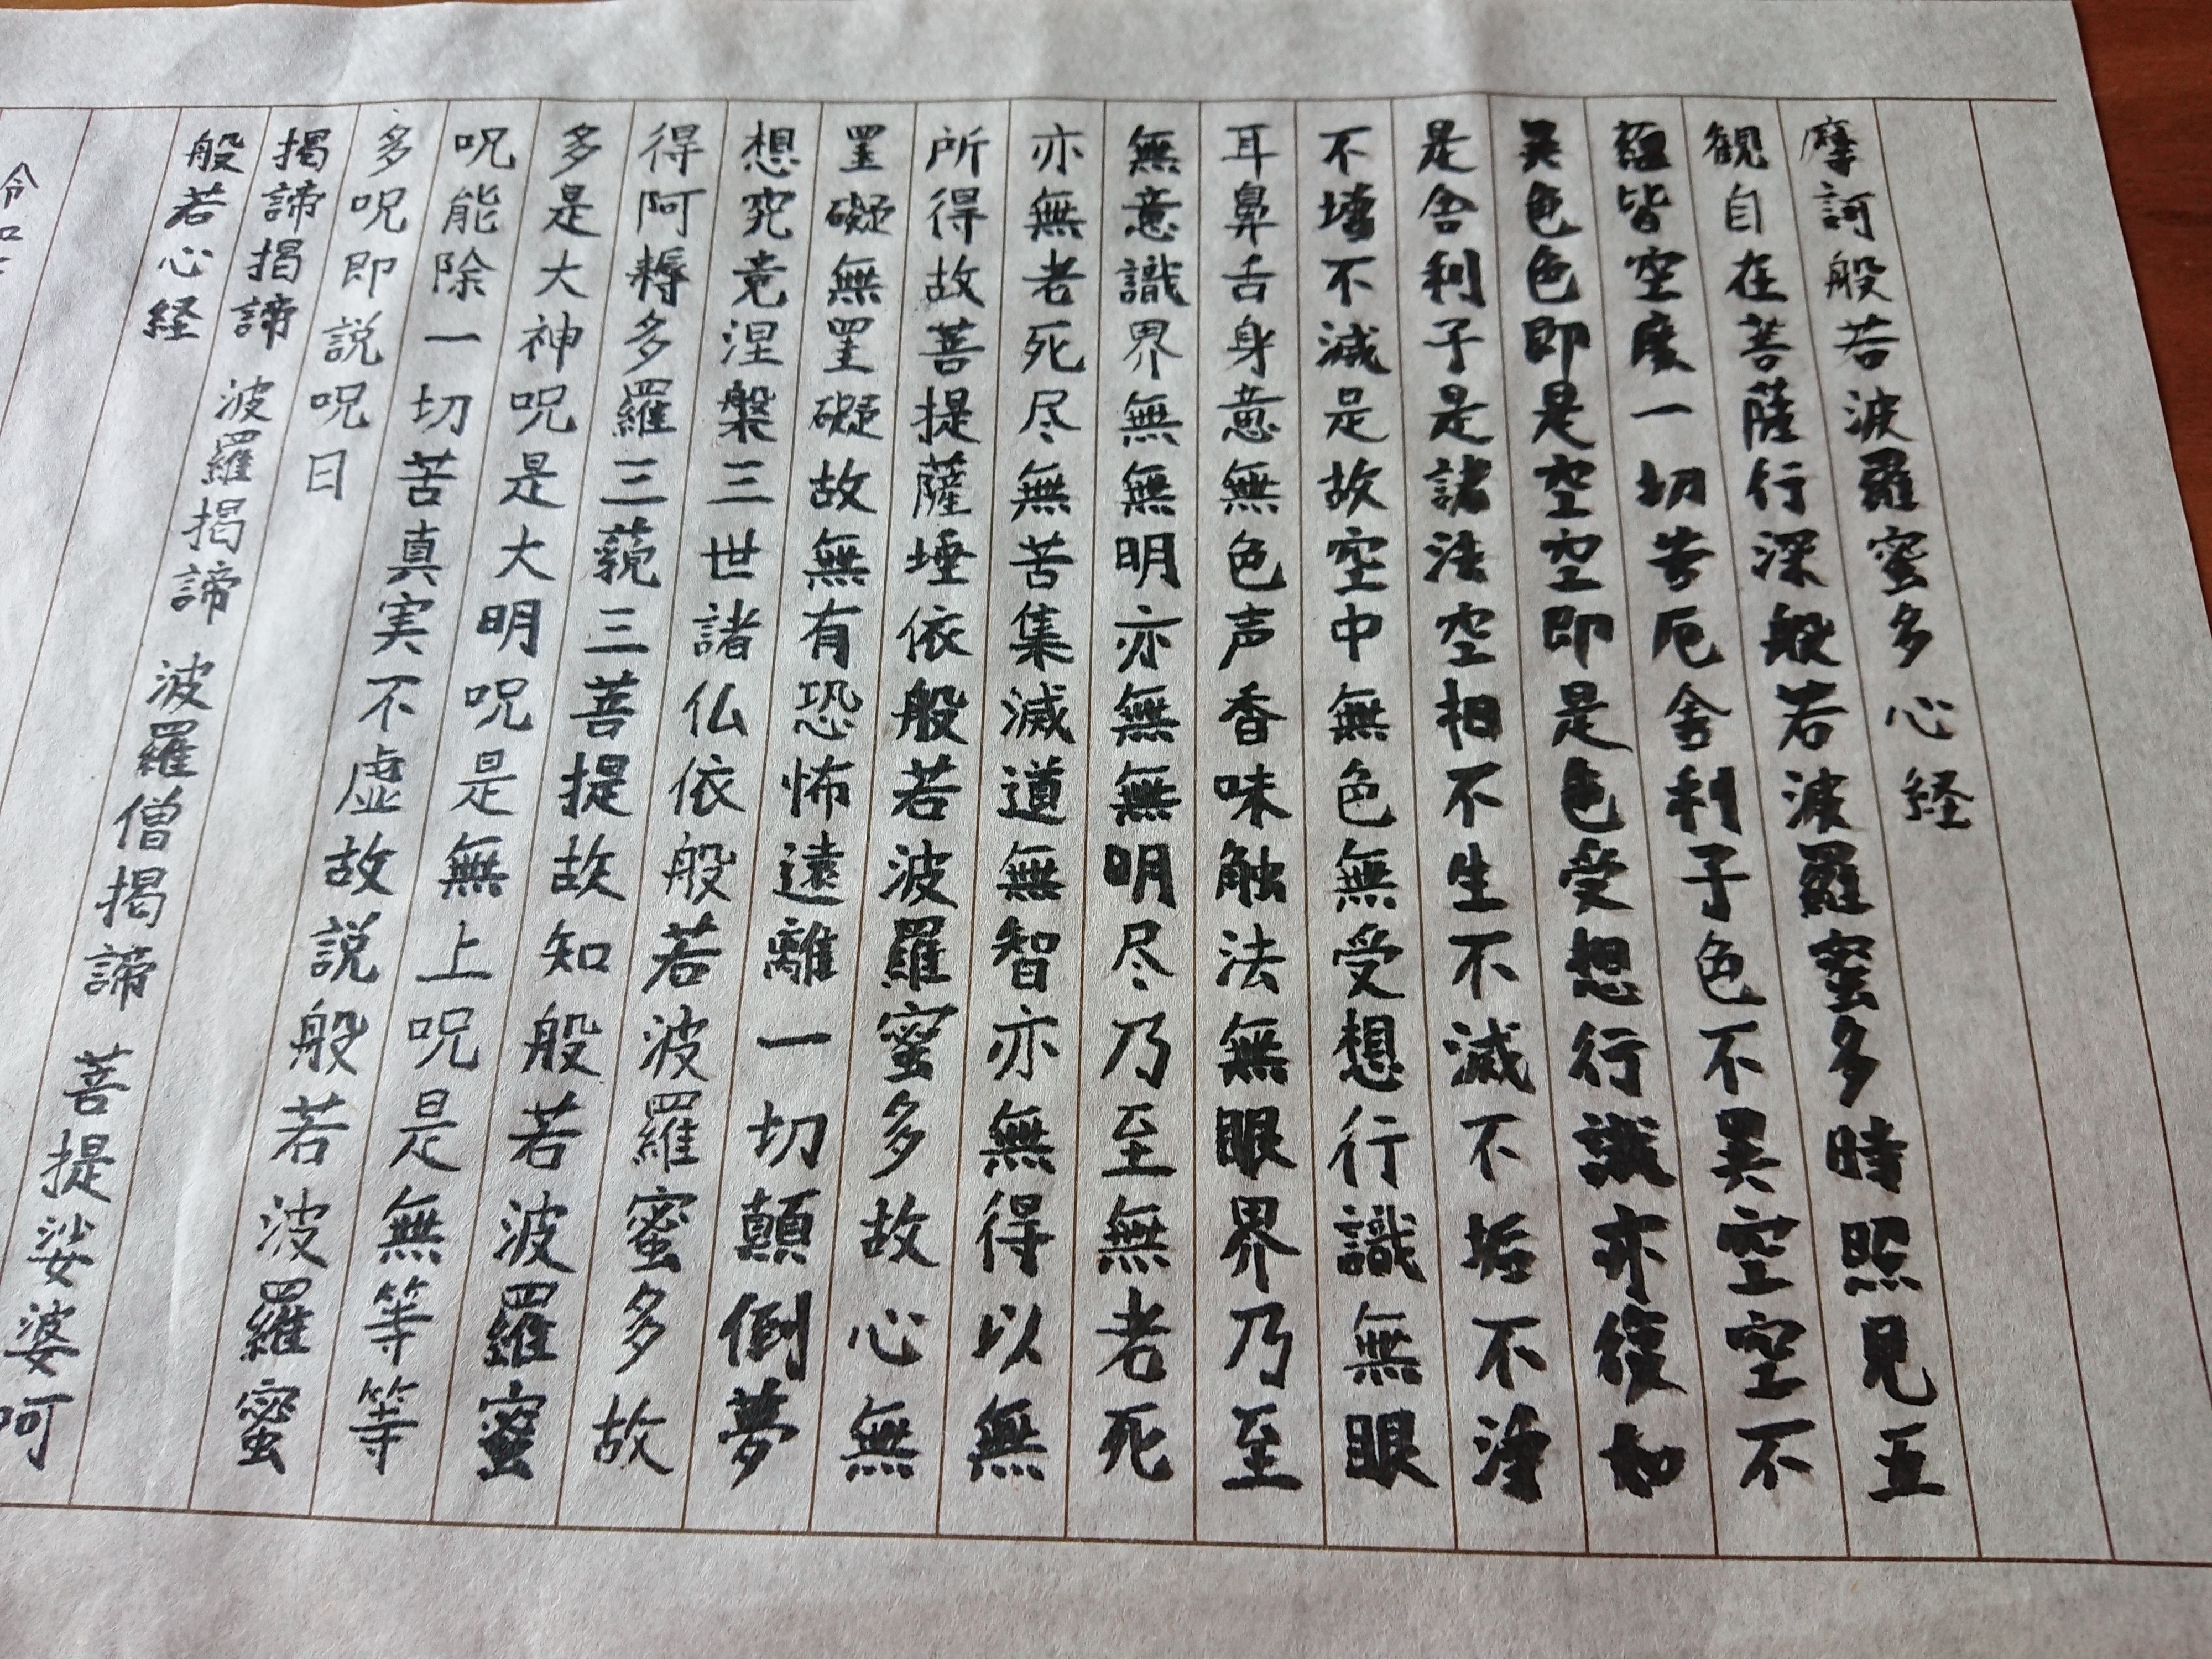 摩訶般若波羅蜜多心経
観自在菩薩行深般若波羅蜜多時照見五
蘊皆空度一切苦厄舎利子色不異空空不
異色色即是空空即是色受想行識亦復如
是舎利子是諸法空相不生不滅不垢不浄
不増不減是故空中無色無受想行識無眼
耳鼻舌身意無色声香味触法無眼界乃至
無意識界無無明亦無無明尽乃至無老死
亦無老死尽無苦集滅道無智亦無得以無
所得故菩提薩埵依般若波羅蜜多故心無
罣礙無罣礙故無有恐怖遠離一切顛倒夢
想究竟涅槃三世諸仏依般若波羅蜜多故
得阿耨多羅三藐三菩提故知般若波羅蜜
多是大神呪是大明呪是無上呪是無等等
呪能除一切苦真実不虚故説般若波羅蜜
多呪即説呪曰
掲諦掲諦 波羅掲諦 波羅僧掲諦 菩提娑婆呵
般若心経